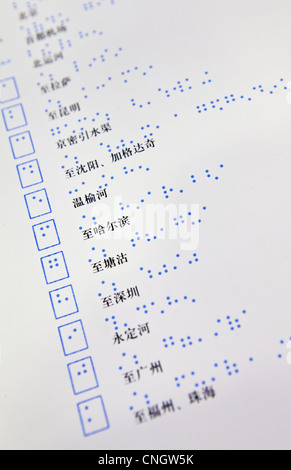 北京
首都机场
北运河
至拉萨
至昆明
京密引水渠
至沈阳、加格达奇
温榆河
至哈尔滨
至塘沽
至深圳
永定河
至广州
至福州、珠海
alamy
Image ID: CNGW5K
www.alamy.com